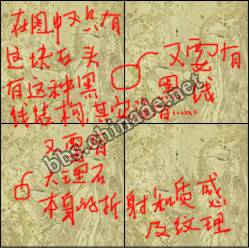 在图中又只有
这块石头
有这种黑
线结构
又要有
黑线
又要有
大理石
本身 折射和质感
及纹理